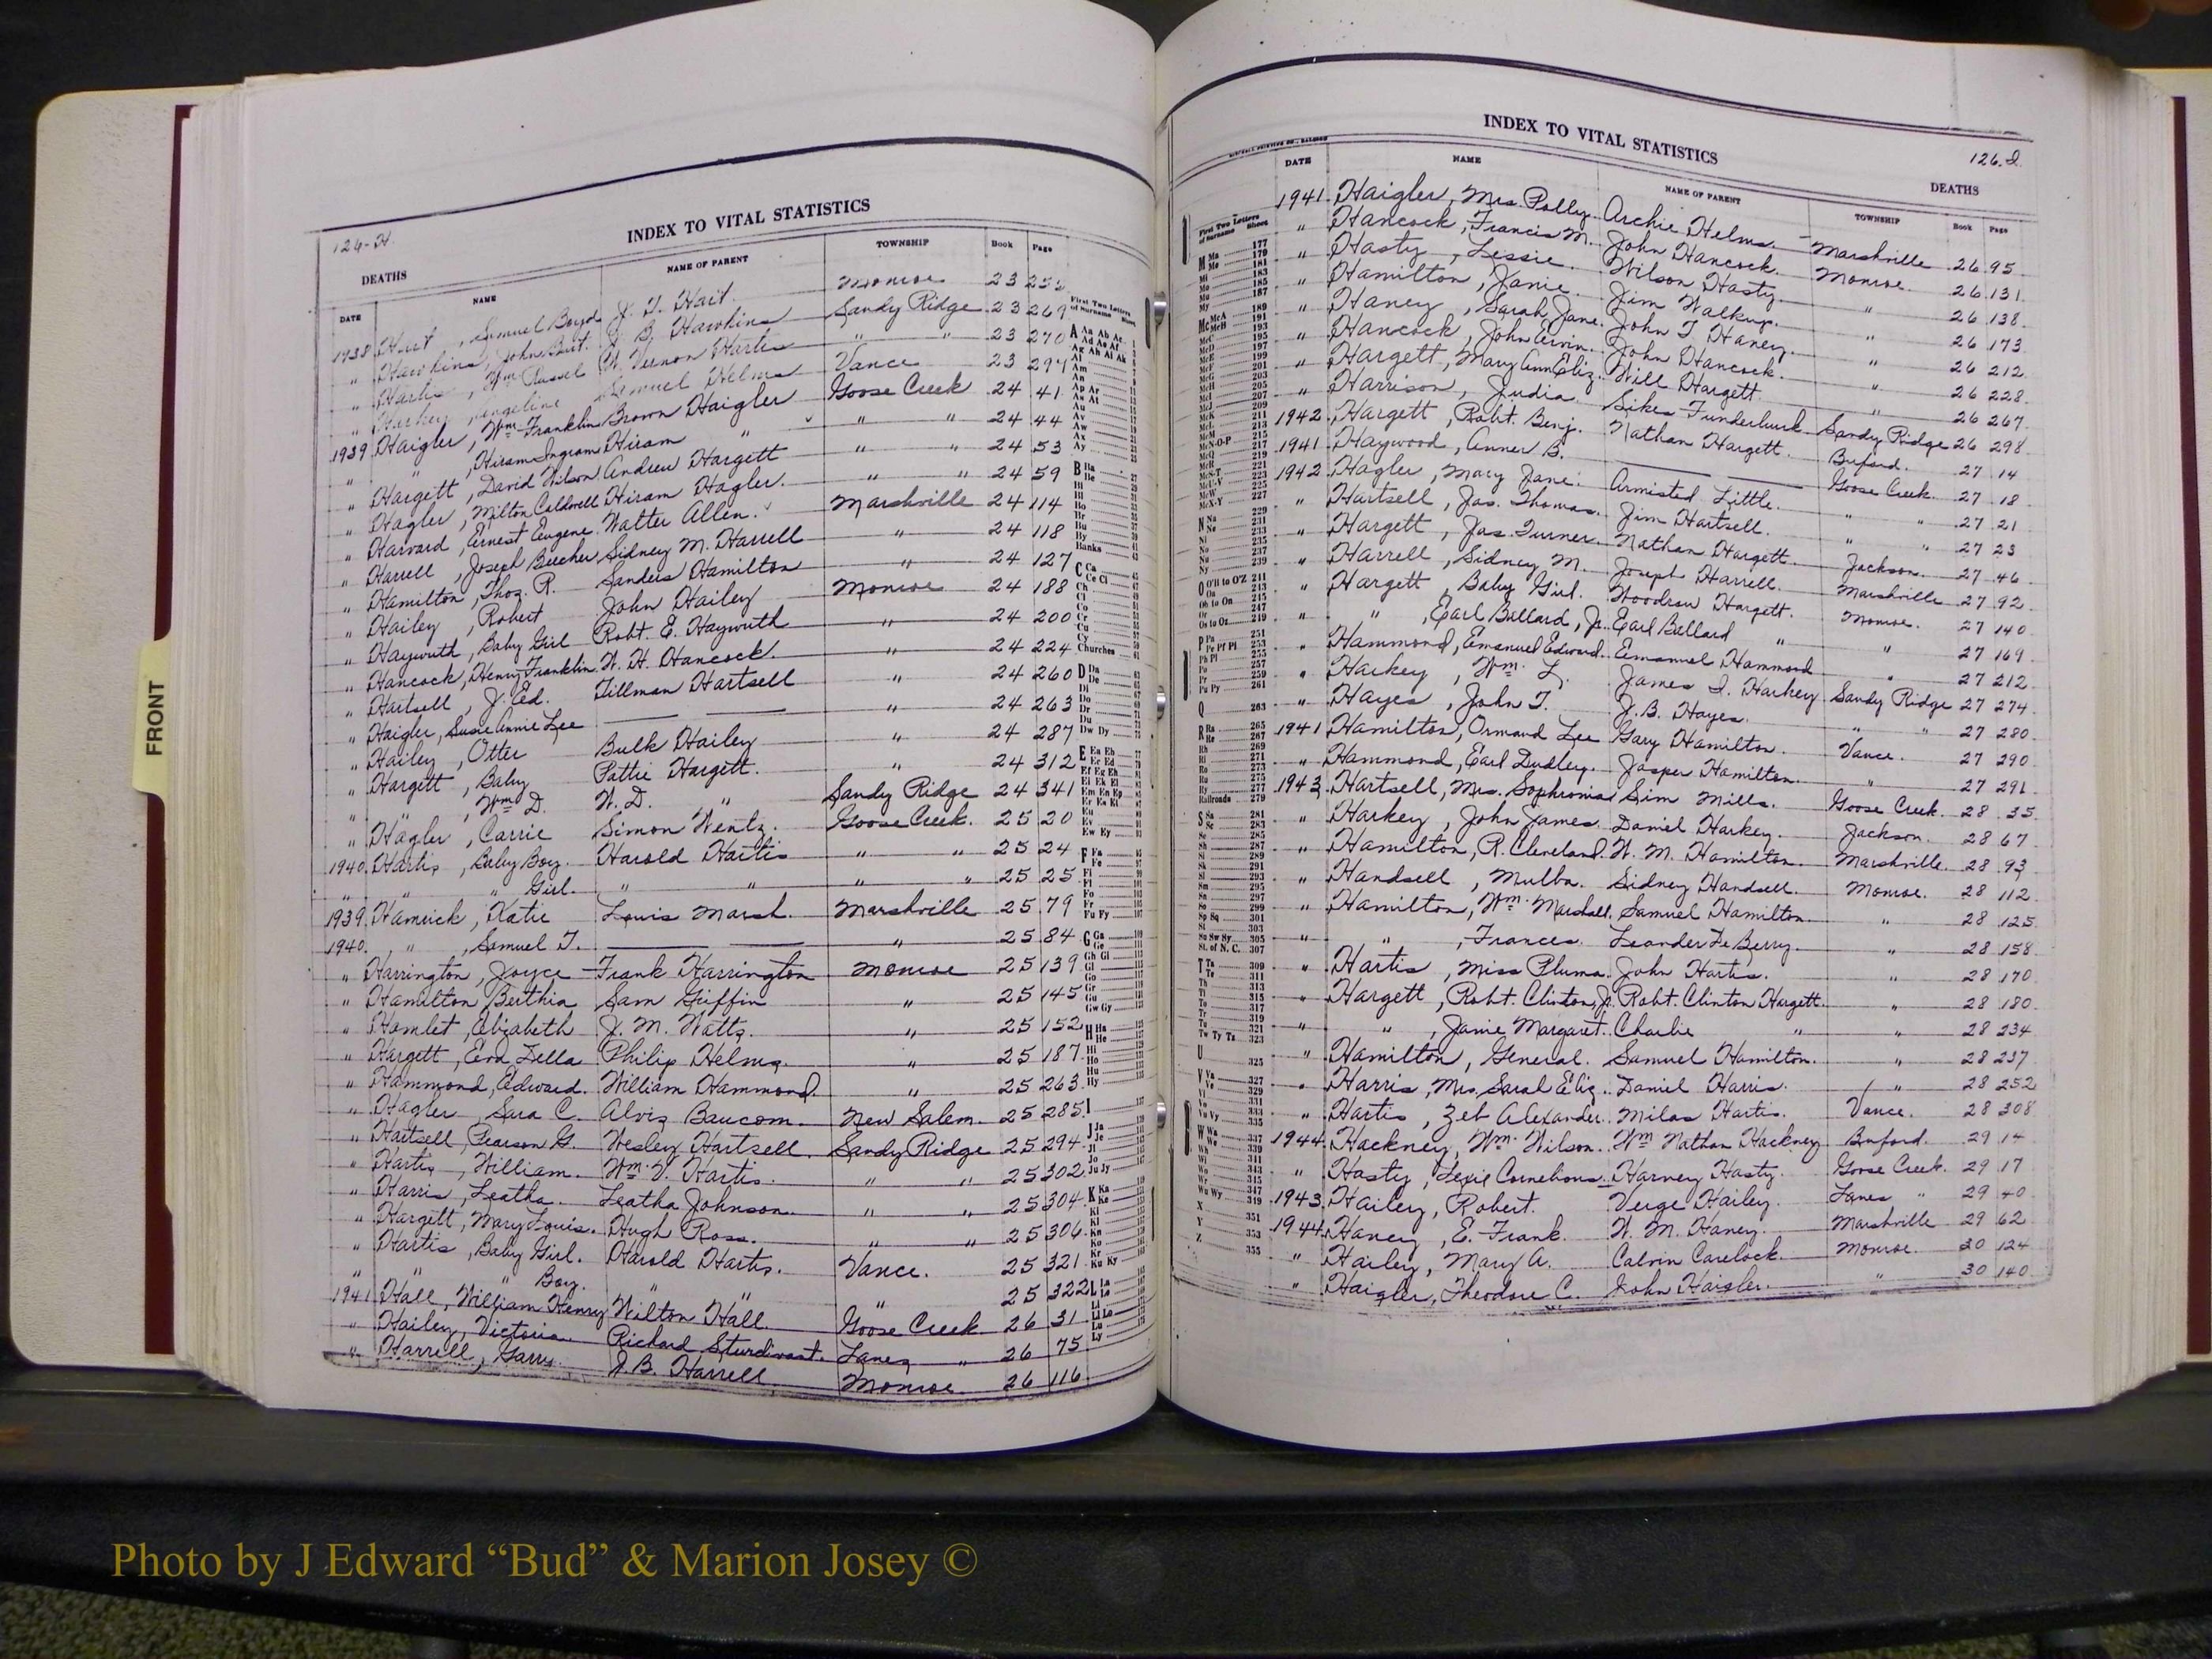 FRONT
126-H.
INDEX TO VITAL STATISTICS
DEATHS
DATE NAME NAME OF PARENT TOWNSHIP Book Page
1938 Hait, Samuel Boyd J. T. Hait. Monroe 23
" Hawkins, John Burt. J. B. Hawkins Sandy Ridge 23 269
" Hartis, Wm. Russel W. Vernon Hartis " " 23 270
" Harkey, Angeline Samuel Helms Vance 23 297
1939 Haigler, Wm. Franklin Brown Haigler Goose Creek 24 41
" " , Hiram Ingram Hiram " " " 24 44
" Hargett, David Wilson Andrew Hargett " " 24 53
" Hagler, Milton Caldwell Hiram Hagler. " " 24 59
" Harvard, Ernest Eugene Walter Allen. Marshville 24 114
" Harrell, Joseph Beecher Sidney M. Harrell " 24 118
" Hamilton, Thos. R. Sanders Hamilton " 24 127
" Hailey, Robert John Hailey Monroe 24 188
" Haywuth, Baby Girl Robt. E. Haywuth " 24 200
" Hancock, Henry Franklin W. H. Hancock. " 24 224
" Hartsell, J. Ed. Tillman Hartsell " 24 260
" Haigler, Susie Annie Lee " 24 263
" Hailey, Otter Bulk Hailey " 24 287
" Hargett, Baby Pattie Hargett. " 24 312
" " , Wm D. W. D. " Sandy Ridge 24 341
" Hagler, Carrie Simon Wentz. Goose Creek. 25 20
1940 Hartis, Baby Boy. Harold Hartis " " 25 24
" " " Girl. " " " " 25 25
1939 Hamrick, Katie Louis Marsh. Marshville 25 79
1940. " , Samuel T. " 25 84
" Harrington, Joyce Frank Harrington Monroe 25 139
" Hamilton Berthia Sam Griffin " 25 145
" Hamlet, Elizabeth J. M. Watts. " 25 152
" Hargett, Eva Della Philip Helms. " 25 187
" Hammond, Edward. William Hammond. " 25 263
" Hagler, Sara C. Alvis Baucom. New Salem. 25 285
" Hartsell, Pearson G. Wesley Hartsell. Sandy Ridge 25 294
" Hartis, William. Wm. V. Hartis. " " 25 302
" Harris, Leatha. Leatha Johnson. " " 25 304
" Hargett, Mary Louis. Hugh Ross. " " 25 306
" Hartis, Baby Girl. Harold Hartis. Vance. 25 321
" " " Boy. " " " 25 322
1941 Hall, William Henry Wilton Hall. Goose Creek 26 31
" Hailey, Victoria. Richard Sturdivant. Lanes " 26 75
" Harrell, J. B. Harrell. Monroe 26 116
INDEX TO VITAL STATISTICS
126.I
DEATHS
DATE NAME NAME OF PARENT TOWNSHIP Book Page
1941 Haigler, Mrs. Polly. Archie Helms. Marshville 26 95
" Hancock, Francis M. John Hancock. Monroe. 26 131
" Hasty, Lessie. Wilson Hasty. " 26 138
" Hamilton, Janie. Jim Walkup. " 26 173
" Haney, Sarah Jane. John T Haney. " 26 212
" Hancock, John Ervin. John Hancock. " 26 228
" Hargett, Mary Ann Eliz. Will Hargett. " 26 267
" Harrison, Judia. Sikes Funderburk Sandy Ridge 26 298
1942 Hargett, Robt. Benj. Nathan Hargett. Buford. 27 14
1941 Haywood, Anner B. Goose Creek. 27 18
1942 Hagler, Mary Jane. Armisted Little. " " 27 21
" Hartsell, Jas. Thomas. Jim Hartsell. " " 27 23
" Hargett, Jas. Turner. Nathan Hargett. Jackson. 27 46
" Harrell, Sidney M. Joseph Harrell. Marshville 27 92
" Hargett, Baby Girl. Woodrow Hargett. Monroe. 27 140
" " , Earl Ballard, Jr. Earl Ballard " " 27 169
" Hammond, Emanuel Edward. Emanuel Hammond " 27 212
" Harkey, Wm. L. James I. Harkey Sandy Ridge 27 274
" Hayes, John T. J. B. Hayes. " " 27 280
1941 Hamilton, Ormand Lee Gary Hamilton. Vance. 27 290
" Hammond, Earl Dudley. Jasper Hamilton. " 27 291
1943 Hartsell, Mrs. Sophronia Sim Mills. Goose Creek. 28 35
" Harkey, John James Daniel Harkey. Jackson. 28 67
" Hamilton, R. Cleveland. W. M. Hamilton. Marshville. 28 93
" Handsell, Mulba. Sidney Handsell. Monroe. 28 112
" Hamilton, Wm. Marshall. Samuel Hamilton. " 28 125
" " , Frances. Leander DeBerry. " 28 158
" Hartis, Miss Pluma. John Hartis. " 28 170
" Hargett, Robt. Clinton, Jr. Robt. Clinton Hargett. " 28 180
" " , Janie Margaret. Charlie " " 28 234
" Hamilton, General. Samuel Hamilton. " 28 237
" Harris, Mrs. Saral Eliz. Daniel Harris. " 28 252
" Hartis, Zeb Alexander. Milas Hartis. Vance. 28 308
1944. Hackney, Wm. Wilson. Wm Nathan Hackney Buford. 29 14
" Hasty, Lexie Cornelious. Harvey Hasty. Goose Creek. 29 17
1943. Hailey, Robert. Verge Hailey. Lanes " 29 40
1944. Haney, E. Frank. W. M. Haney. Marshville 29 62
" Hailey, Mary A. Calvin Carelock. Monroe. 30 124
" Haigler, Theodore C. John Haigler. " 30 140
Photo by J Edward “Bud” & Marion Josey ©